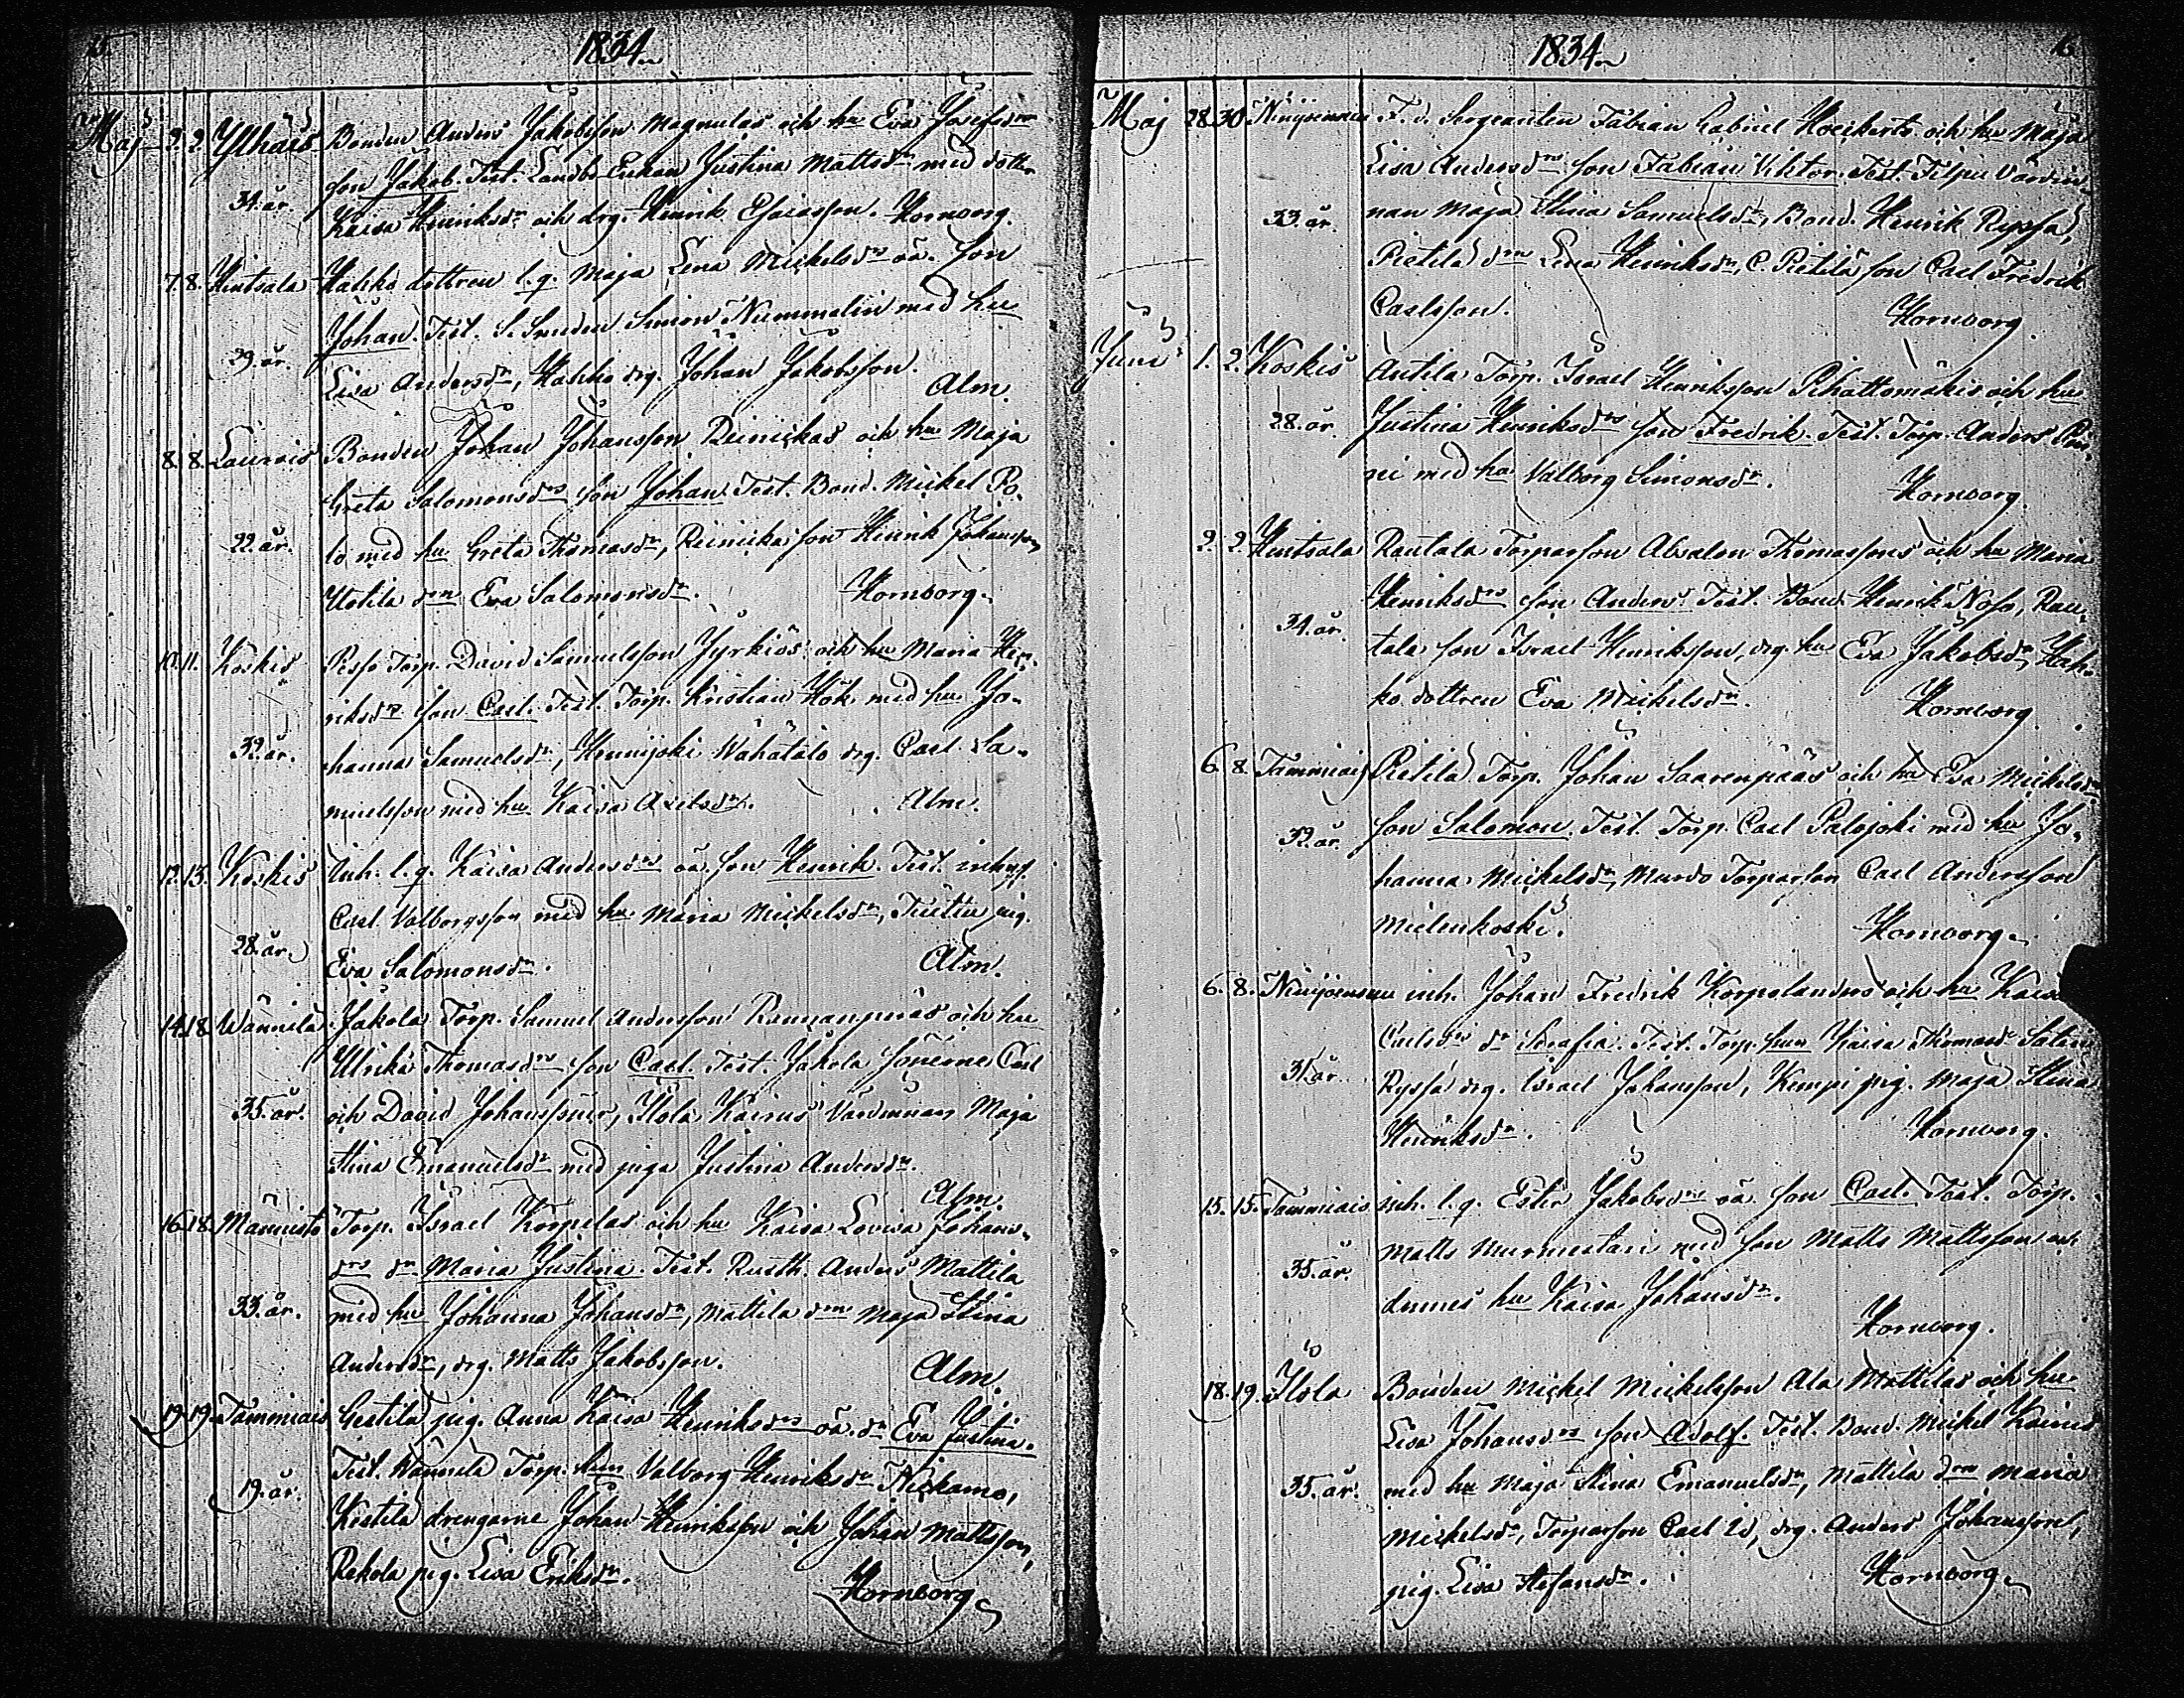 15
1834.
Maj 2. 2. Ylhäis Bonden Anders Jakobsson Magnulas och hu Eva Josefsdrs
son Jakob. Test. Landbo Enkan Justina Mattsdr med dotter
34. år. Kaisa Henriksdr och drg. Henrik Esaiasson. Hornborg.
7. 8. Hintsala Hahko dottren l. q. Maja Lena Mickelsdrs oä. son
Johan. Test. S. Smeden Simon Nummelin med hu
29. år. Lisa Andersdr, Hahko drg. Johan Jakobsson. Alm.
8. 8. Laurois Bonden Johan Johansson Reinickas och hu Maja
Greta Salomonsdrs son Johan. Test. Bond. Mickel Po-
22. år. lo med hu Greta Thomasdr, Reinicka son Henrik Johansson,
Uotila drn Eva Salomonsdr. Hornborg.
10. 11. Koskis Torp. David Samuelsson Jyrkiös och hu Maria Hen-
riksdrs son Carl. Test. Torp. Kristian Hök med hu Jo-
32. år. hanna Samuelsdr, Hennijoki Wähätalo drg. Carl Sa-
muelsson med hu Kaisa Axelsdr. Alm.
12. 13. Koskis Inh. l. q. Kaisa Andersdrs oä. son Henrik. Test. inhys.
Carl Valborgsson med hu Maria Mickelsdr, pig.
28. år. Eva Salomonsdr. Alm.
14. 18. Wännilä Jakola Torp. Samuel Andersson och hu
Ulrika Thomasdrs son Carl. Test. Jakola sönerne Carl
35. år. och David Johanssöner, Ilola Kairus Värdinnan Maja
Stina Emanuelsdr med piga Justina Andersdr.
Alm.
16. 18. Männistö Torp. Israel Korpelas och hu Kaisa Lovisa Johans-
drs dr Maria Justina. Test. Rusth. Anders Mattila
33. år. med hu Johanna Johansdr, Mattila drn Maja Stina
Andersdr, drg. Matts Jakobsson. Alm.
19. 19. Tammiais Gestilä pig. Anna Kaisa Henriksdrs oä. dr Eva Justina.
Test. Wännilä Torp. hun Valborg Henriksdr
19. år. Kestilä drengarne Johan Henriksson och Johan Mattsson,
Rekola pig. Lisa Eriksdr. Hornborg
1834.
16
Maj 28. 30. Ninijoensuu F. d. Sergeanten Fabian Gabriel och hu Maja
Lisa Andersdrs son Fabian Viktor. Test. Filpu Värdin-
33. år. nan Maja Stina Samuelsdr, Bond. Henrik Ryssä,
Pietilä drn Lena Henriksdr, C. Pietilä son Carl Fredrik
Carlsson. Hornborg
Juni 1. 2. Koskis Antila Torp. Israel Henriksson Pihattomäkis och hu
28. år. Justina Henriksdrs son Fredrik. Test. Torp. Anders
ni med hu Valborg Simonsdr. Hornborg
2. 2. Hintsala Rautala Torparson Absalon Thomassons och hu Maria
Henriksdrs son Anders. Test. Bond. Henrik Noho, Rau-
34. år. tala son Israel Henriksson, drg. hu Eva Jakobsdr, Hah-
ko dottren Eva Mickelsdr. Hornborg
6. 8. Tammiais Pietilä Torp. Johan Saarenpääs och hu Eva Mickelsdrs
32. år. son Salomon. Test. Torp. Carl Palojoki med hu Jo-
hanna Mickelsdr, Murdo Torparson Carl Andersson
Mielenkoski. Hornborg.
6. 8. Ninijoensuu inh. Johan Fredrik Korpelanders och hu Kaisa
Carlsdrs dr Serafia. Test. Torp. hun Kaisa Thomasdr
31. år. Ryssä drg. Israel Johansson, Kemppi pig. Maja Stina
Henriksdr. Hornborg.
15. 15. Tammiais inh. l. q. Ester Jakobsdrs oä. son Carl. Test. Torp.
35. år. Matts Murmestari med son Matts Mattsson och
dennes hu Kaisa Johansdr.
Hornborg.
18. 19. Ilola Bonden Mickel Mickelsson Ala Mattilas och hu
Lisa Johansdrs son Adolf. Test. Bond. Mickel Kairus
35. år. med hu Maja Stina Emanuelsdr, Mattila drn Maria
Mickelsdr, Torparson Carl Id, drg. Anders Johansson,
pig. Lisa Stefansdr. Hornborg.